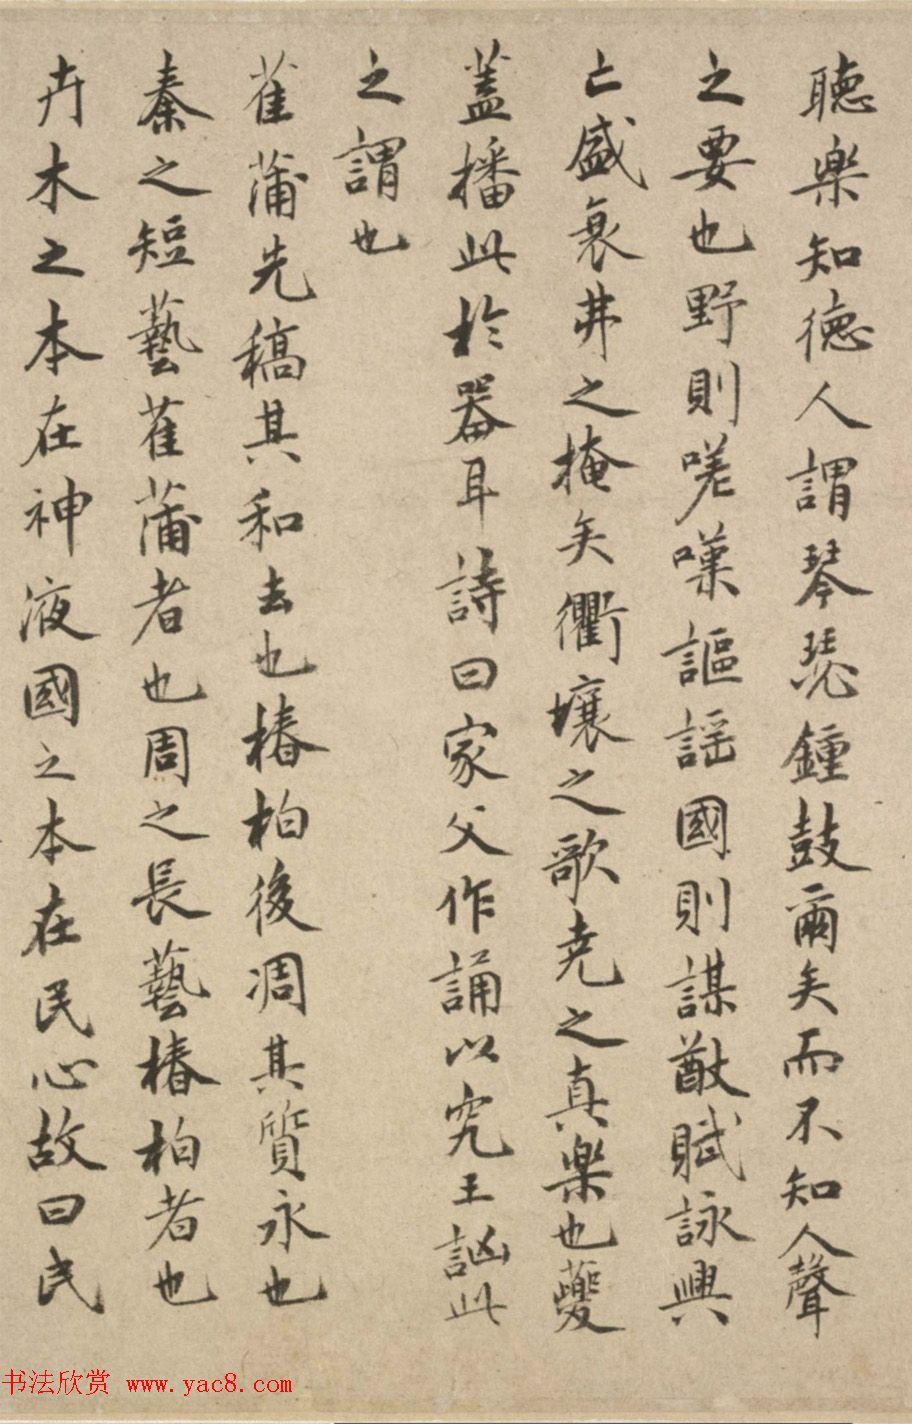 聽樂知德人謂琴瑟鍾鼓爾矣而不知人聲
之要也野則嗟嘆謳謠國則謀猷賦詠興
亡盛衰弗之掩矣衢壤之歌堯之真樂也夔
蓋播此於器耳詩曰家父作誦以究王訩此
之謂也
萑蒲先稿其和去也椿柏後凋其質永也
秦之短藝萑蒲者也周之長藝椿柏者也
卉木之本在神液國之本在民心故曰民
书法欣赏 www.yac8.com